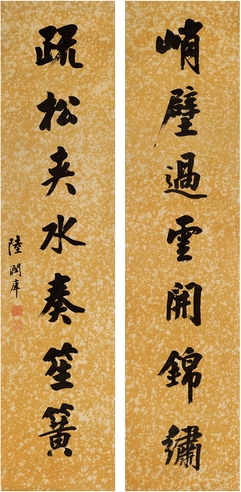 峭壁過雲開錦繡
疏松夾水奏笙簧
陸潤庠